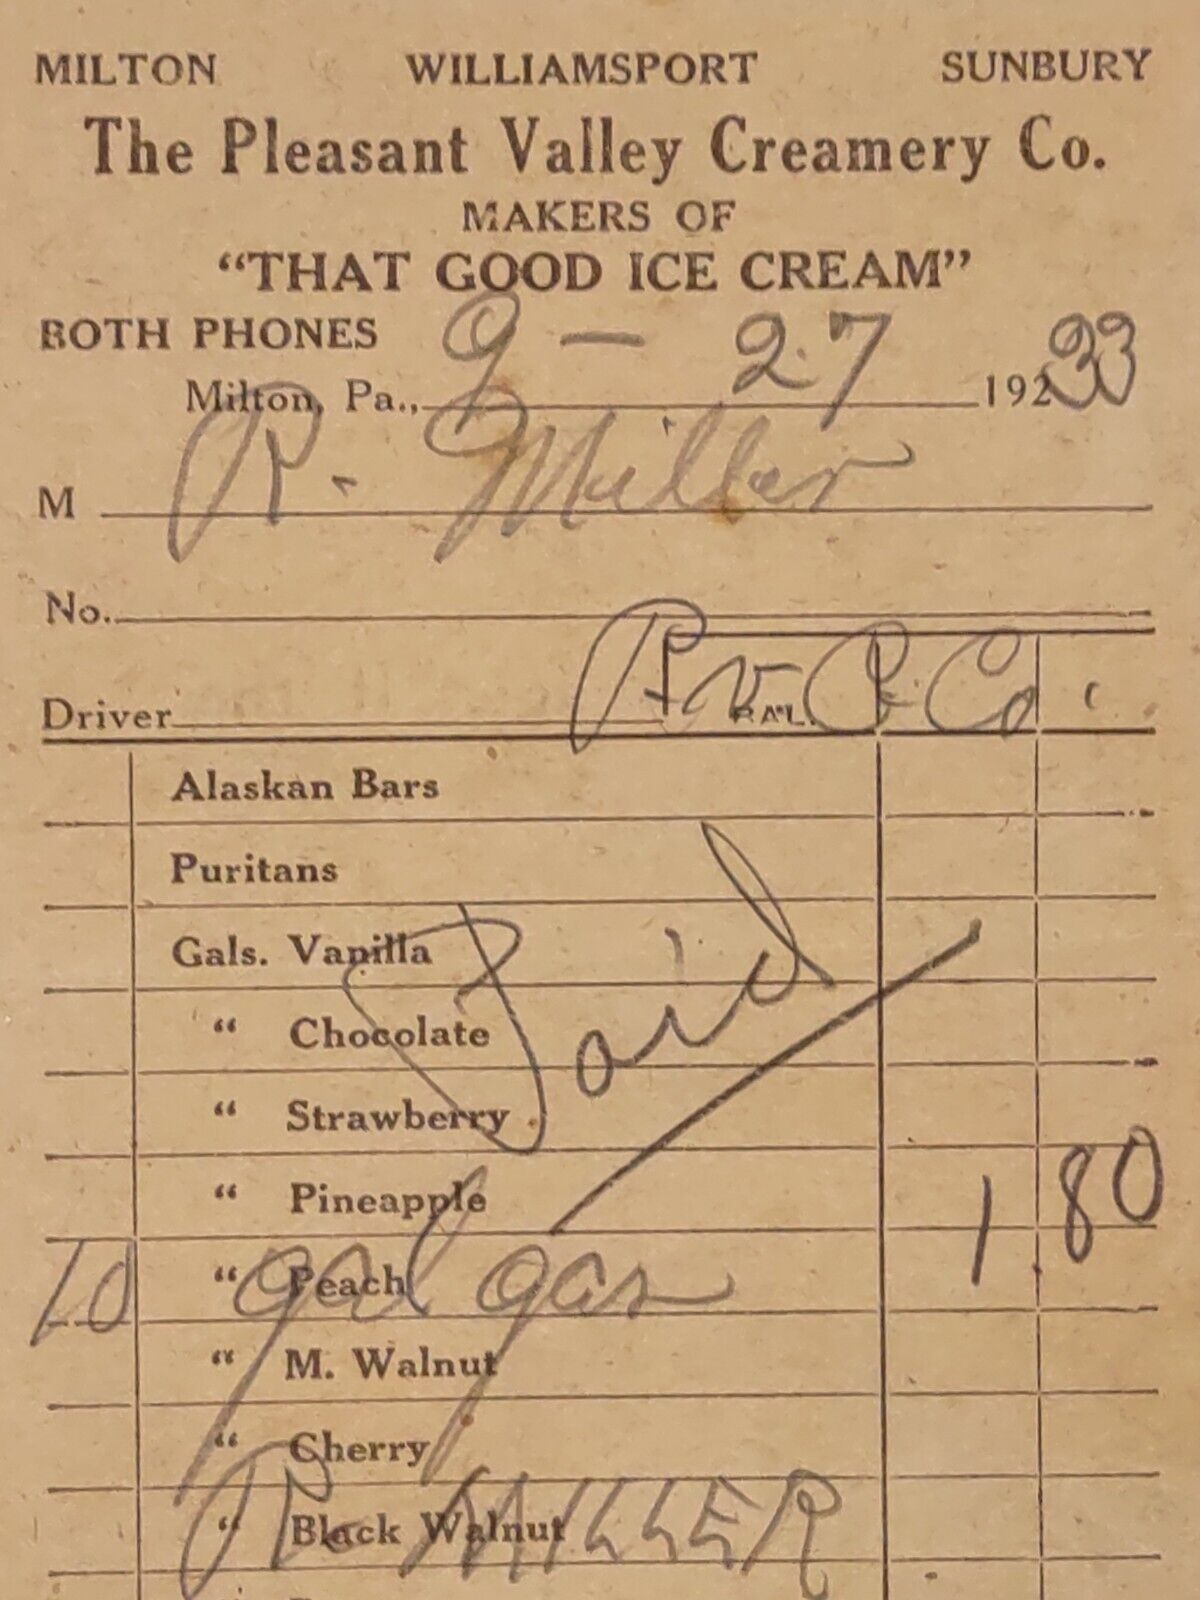 MILTON WILLIAMSPORT SUNBURY
The Pleasant Valley Creamery Co.
MAKERS OF
“THAT GOOD ICE CREAM”
BOTH PHONES
Milton, Pa., 9 – 27 19233
M R. Miller
No.
Driver P. V. C. Co.
Alaskan Bars
Puritans
Gals. Vanilla
“ Chocolate
Paid
“ Strawberry
“ Pineapple 1 80
“ Peach
10 gal gas
“ M. Walnut
“ Cherry
“ Black Walnut
R. MILLER